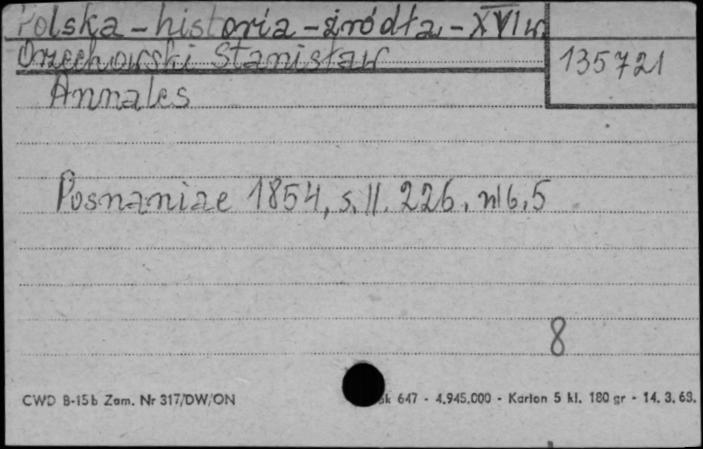 Polska - historia - źródła, - XVI w
Orzechowski Stanisław
135721
Annales
Posnaniae 1854, s. II. 226. nlb. 5
8
CWD B-15b Zam. Nr 317/DW/ON
647 - 4.945.000 - Karton 5 kl. 180 gr - 14. 3. 63.